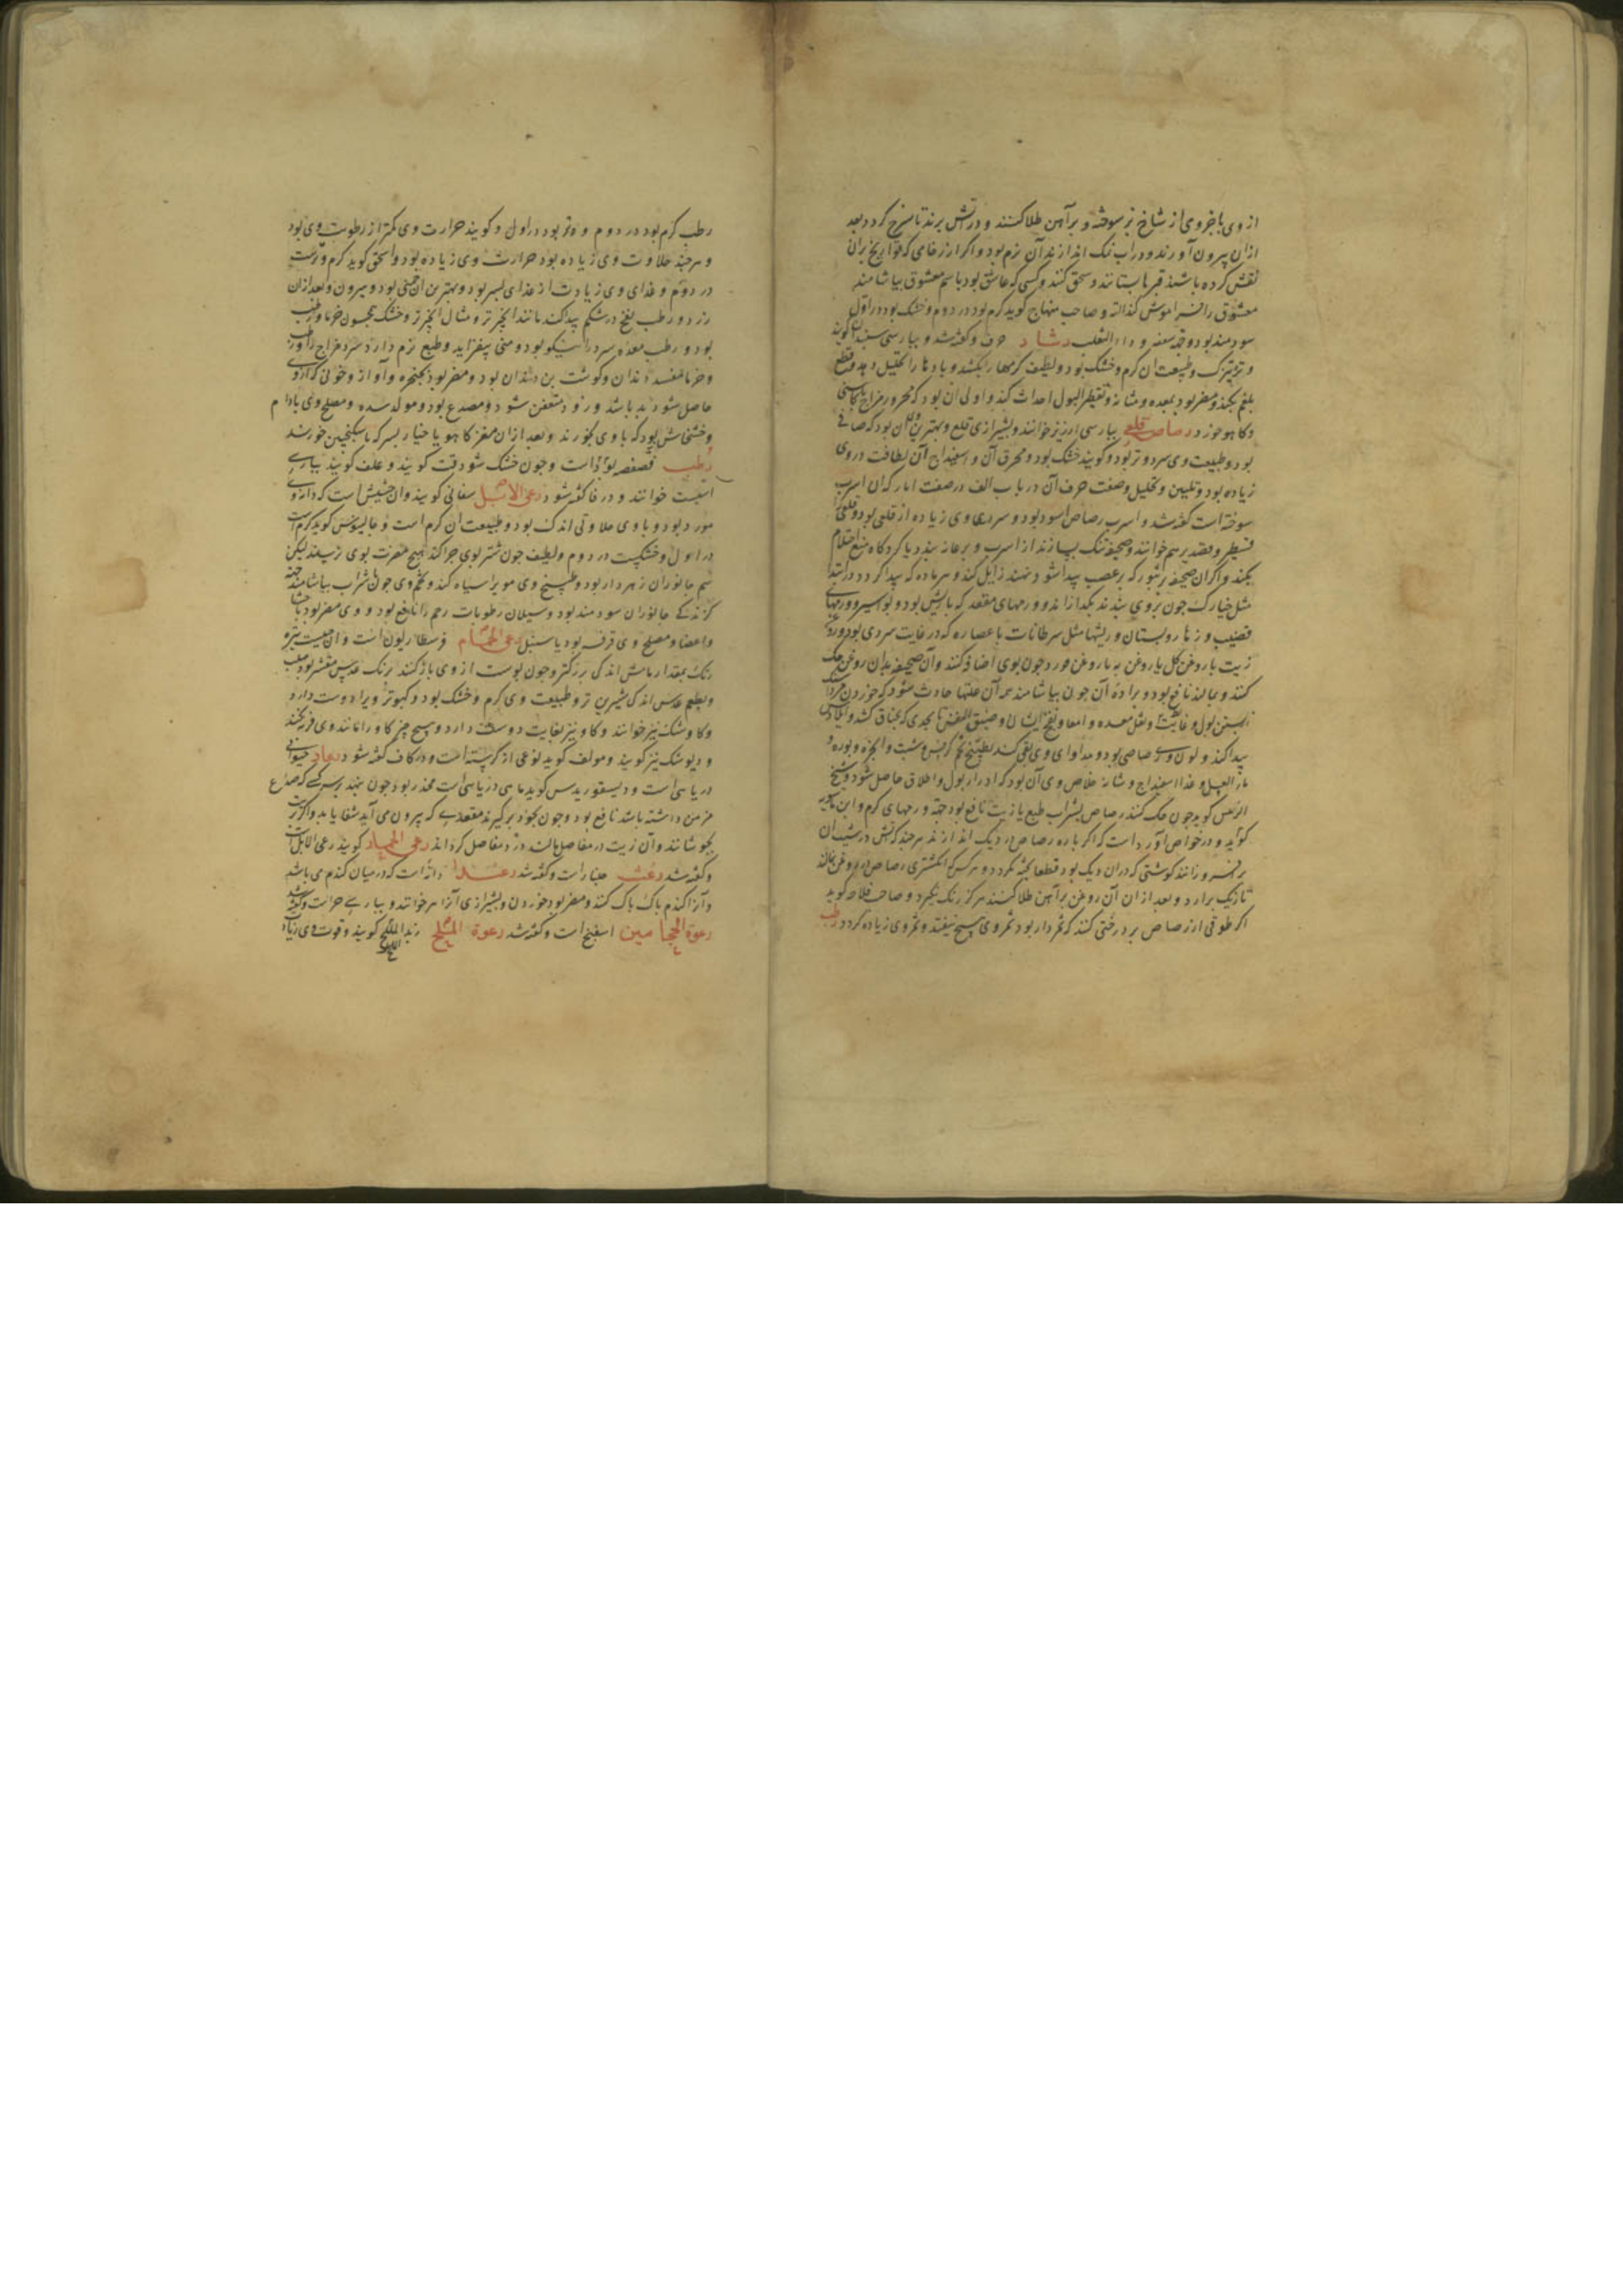 از وی با جزوی از شاخ بز سوخته و بر آهن طلا کنند و در آتش برند تا سرخ کردد بعد
ازان بیرون آورند و در اب نمک اندازند آن نرم بود و اکر از رخامی که تواریخ بران
نقش کرده باشند قبرها بستانند و سحق کنند و کسی که عاشق بود باسم معشوق بیاشامند
معشوق را فراموش کند البته و صاحب منهاج کوید کرم بود در دوم و خشک بود در اول
سودمند بود و داء الثعلب رشاد حرف و کفته شد و بپارسی سپندان کویند
و تره تیزک و طبیعت ان کرم و خشک بود و لطیف کرمها را بکشد و بادها را تحلیل دهد و قطع
بلغم بکند و مضر بود بمعده و مثانه و تقطیر البول احداث کند و اولی ان بود که محرور مزاج با کاسنی
و کاهو خورد رصاص قلعی بپارسی ارزیز خوانند و بشیرازی قلع و بهترین آن بود که صافی
بود و طبیعت وی سرد و تر بود و کویند خشک بود و محرق آن و اسفیداج آن لطافت در وی
زیاده بود و تلیین و تحلیل و صفت حرق آن در باب الف در صفت ابار که ان اسرب
سوخته است کفته شد و اسرب رصاص اسود بود و سردی وی زیاده از قلعی بود و قلعی را
قسطیر و قصدیر هم خوانند و صحیفه تنک بسازند از اسرب و بر عانه بندد یا کرد کاه منع احتلام
بکند و اکر ان صحیفه بر بثور که بر عصب پیدا شود نهند زایل کند و هر ماده که پیدا کردد در ابتدا
مثل خیارک چون بر وی بندند بکدازاند و ورمهای مقعد که با ریش بود و بواسیر و ورمهای
قضیب و زهار و پستان و ریشها مثل سرطانات با عصاره که در غایت سردی بود و روغن
زیت یا روغن کل یا روغن به یا روغن مورد چون بوی اضافه کنند و آن صحیفه بدان روغن حک
کنند و بمالند نافع بود و براده آن چون بیاشامند همه آن علتها حادث شود که خوردن مردا سنک
بستن بول و غایط و ثقل معده و امعا و نفخ ایشان و ضیق النفس تا بحدی که بخناق کشد و
پیدا کند و لون وی رصاصی بود و مداوای وی بقی کنند بطبیخ تخم کرفس و شبت و انجره و بوره و
ماء العسل و غذا اسفیداج و نشان خلاص وی آن بود که ادرار بول و اطلاق حاصل شود و شیخ
الرئیس کوید چون حک کنند رصاص بشراب طبع یا زیت نافع بود جهت ورمهای کرم و ابن ماسویه
کوید و در خواص آورده است که اکر پاره رصاص در دیک اندازند هرچند که آتش در شیب ان
برافروزانند کوشتی که دران دیک بود قطعا پخته نکردد و هر کس که انکشتری رصاص در روغن بمالد
تا زنک برارد و بعد ازان آن روغن بر آهن طلا کنند هرکز زنک نکیرد و صاحب فلاحه کوید
اکر طوقی از رصاص بر درختی کنند که ثمردار بود ثمر وی هیچ نیفتد و ثمر وی زیاده کردد رطب
رطب کرم بود در دوم و تر بود در اول و کویند حرارت وی کمتر از رطوبت وی بود
و هرچند حلاوت وی زیاده بود حرارت وی زیاده بود و اسحق کوید کرم و ترست
در دوم و غذای وی زیادت از غذای بسر بود و بهترین ان جنی بود و هیرون و بعد ازان
زرد و رطب نفخ در شکم پیدا کند مانند انجیر تر و مثال انجیر تر و خشک همچون خرما و رطب
بود و رطب معده سرد را نیکو بود و منی بیفزاید و طبع نرم دارد سرد مزاج را و رطب
و خرما مفسد دندان و کوشت بن دندان بود و مضر بود بحنجره و آواز و خونی که از وی
حاصل شود بد باشد و زود متعفن شود و مصدع بود و مولد سده و مصلح وی بادام
و خشخاش بود که با وی بخورند و بعد ازان مغز کاهو یا خیار بسرکه یا سکنجبین خورند
رطب فصفصه بود تر است و چون خشک شود قت کویند و علف کویند بپارسی
اسبست خوانند و در فا کفته شود رعی الابل سفانی کویند و ان حشیش است که دانه وی
مورد بود و با وی حلاوتی اندک بود و طبیعت ان کرم است و جالینوس کوید کرم است
در اول و خشکیست در دوم و لطیف چون شتر بوی چرا کند هیچ مضرت بوی نرسد لیکن
سم جانوران زهردار بود و طبیخ وی موی را سیاه کند و تخم وی چون با شراب بیاشامند جهت
کزندکی جانوران سودمند بود و سیلان رطوبات رحم را نافع بود و وی مضر بود باحشا
و اعضا و مصلح وی قرفه بود یا سنبل رعی الحمام فرسطاریون است و ان حبیست تیره
رنک بمقدار ماش اندکی بزرکتر و چون پوست از وی باز کنند برنک عدس مقشر بود
و بطعم عدس اندکی شیرین تر و طبیعت وی کرم و خشک بود و کبوتر ویرا دوست دارد
و کاوشنک نیز خوانند و کاو نیز بغایت دوست دارد و هیچ چیز کاو را مانند وی فربه نکند
و دیوشنک نیز کویند و مولف کوید نوعی از کرسنه است و در کاف کفته شود رعاد حیوانی
دریایی است و دیسقوریدس کوید ماهی دریایی است مخدر بود چون بنهند بر سر کسی که صداع
مزمن داشته باشد نافع بود و چون بخود بر کیرند مقعدی که بیرون می آید شفا یابد و اکر در زیت
بجوشانند و آن زیت در مفاصل مالند درد مفاصل کرداند رعی الحمار کویند رعی الابل است
و کفته شد رعث جلنار است و کفته شد رعیدا دانه است که در میان کندم می باشد
و آنرا کندم پاک پاک کنند و مضر بود خوردن و بشیرازی آنرا خوانند و بپارسی و کفته شد
رعوة الحجامین اسفنج است و کفته شد رعوة الملح زبد الملح کویند و قوت وی زیاده
الملح